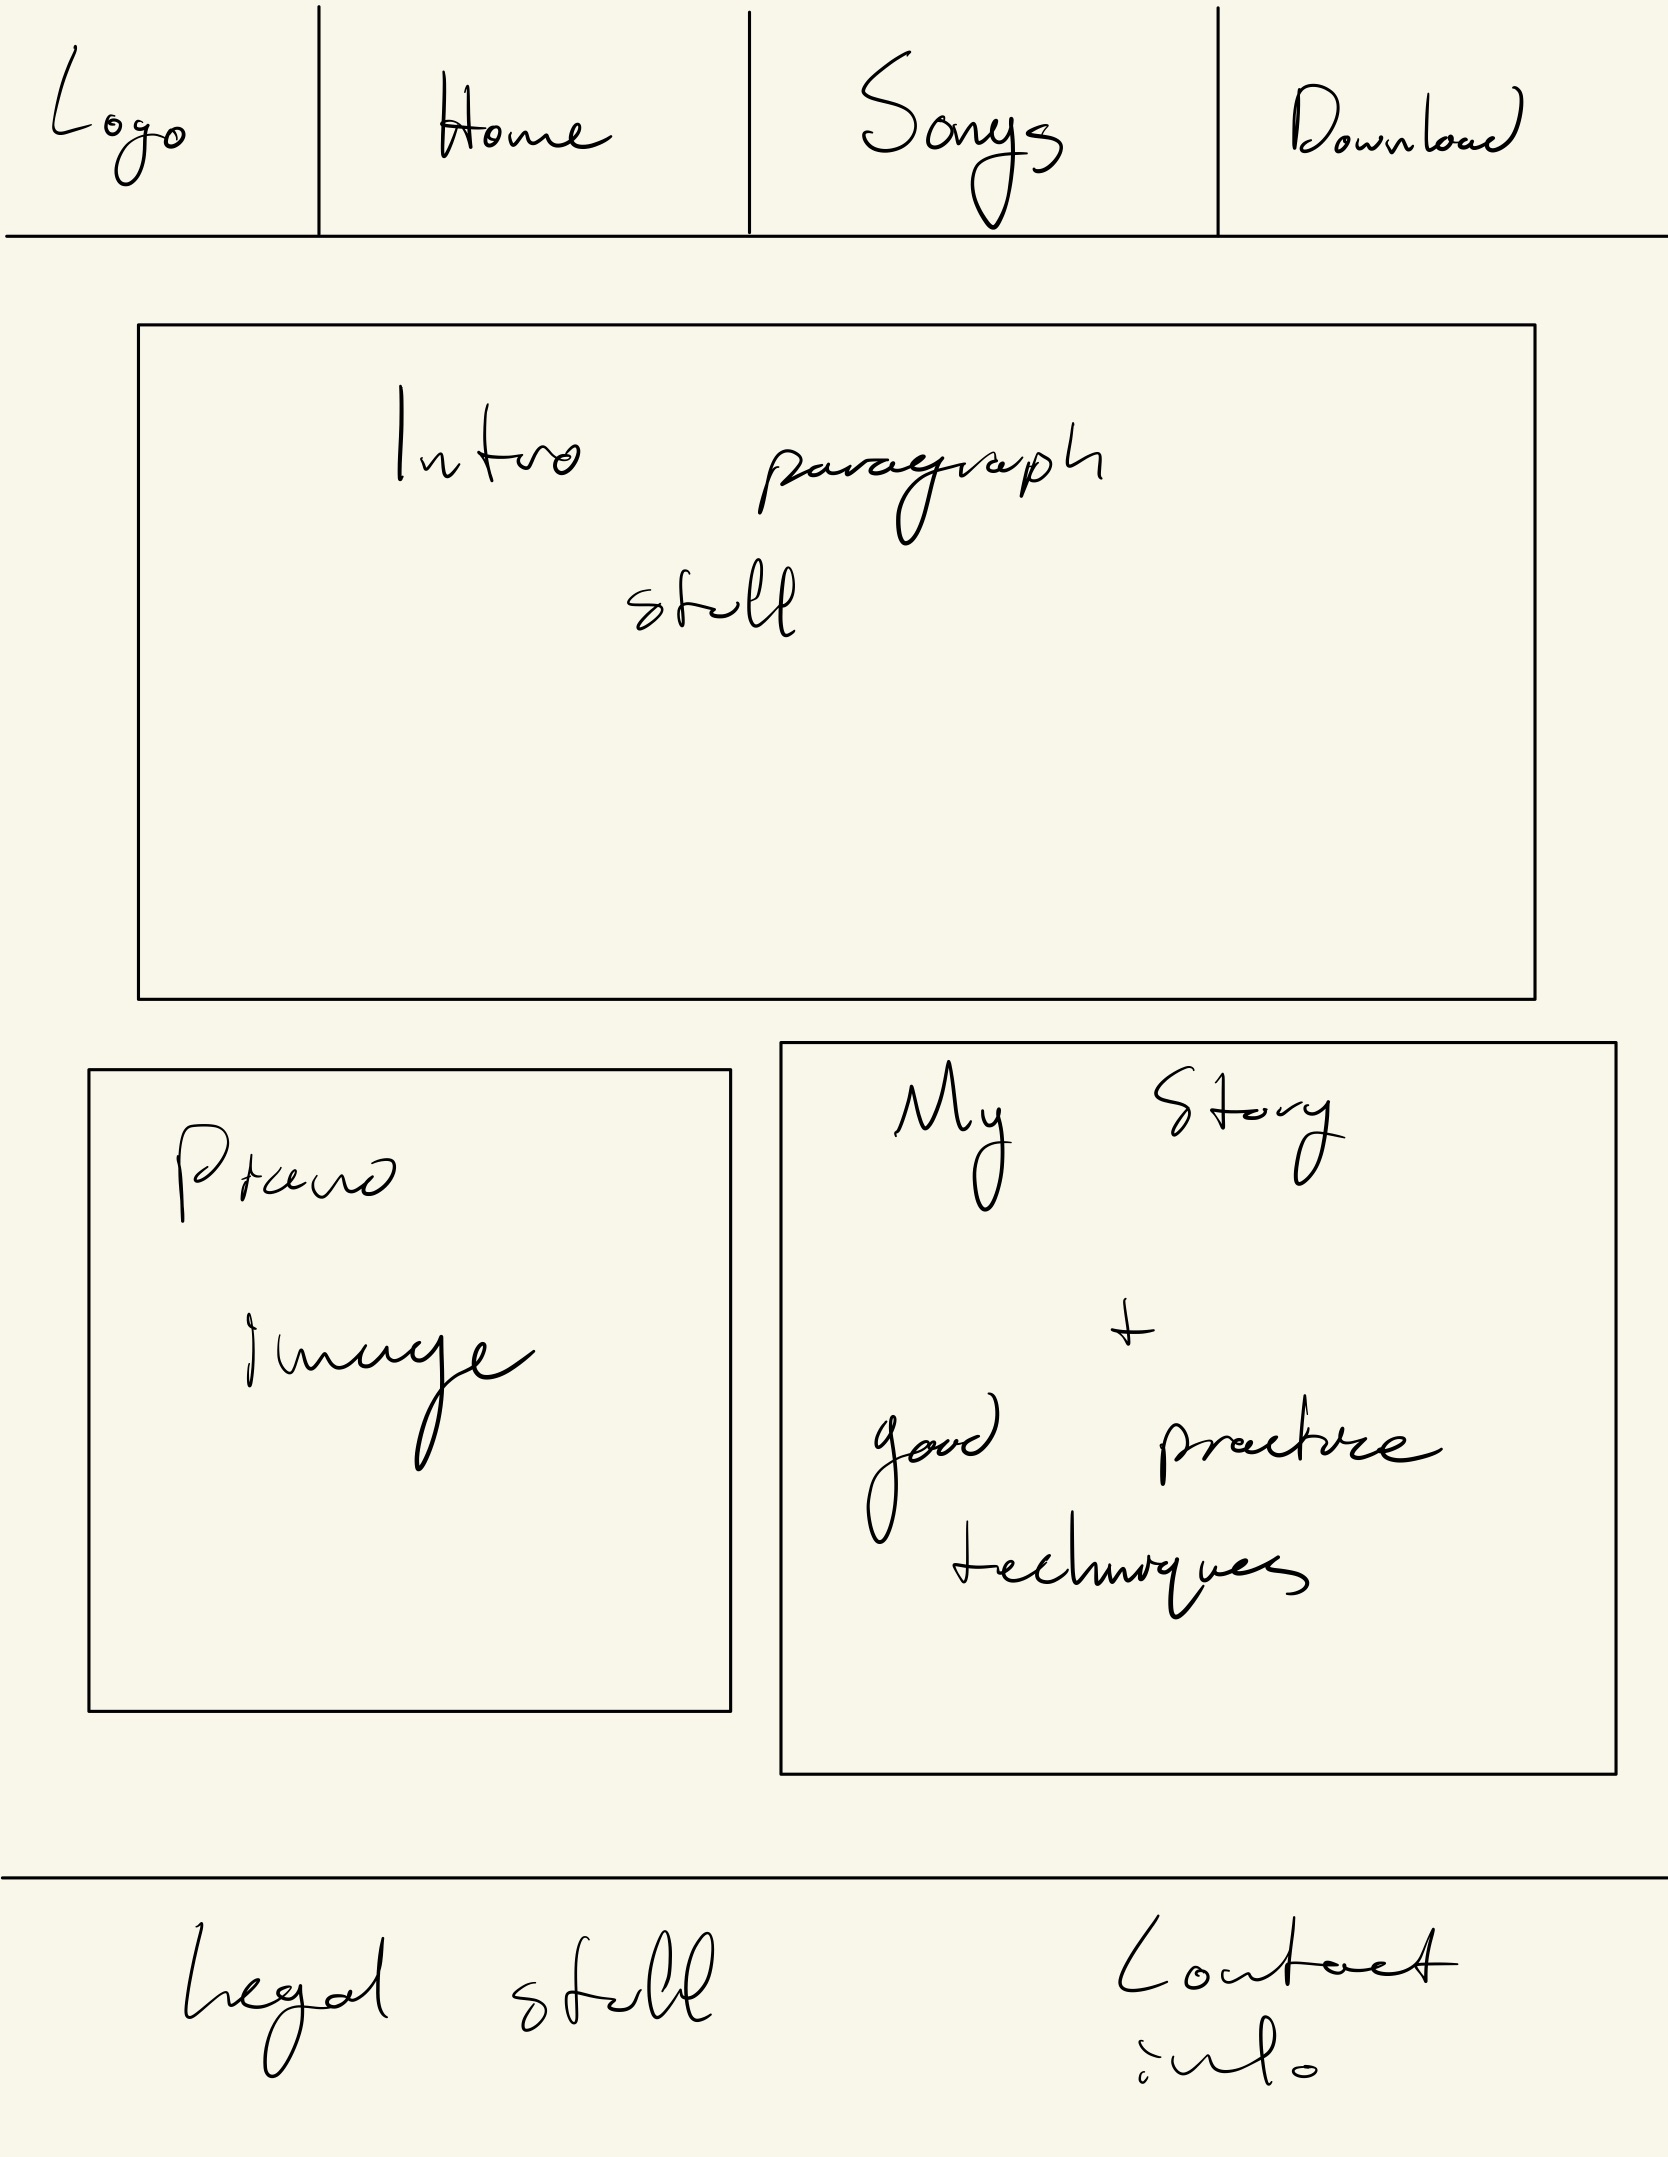 Logo
Home
Songs
Download
Intro paragraph
stuff
Piano
image
My Story
+
good practice
techniques
Legal stuff
Contact
info